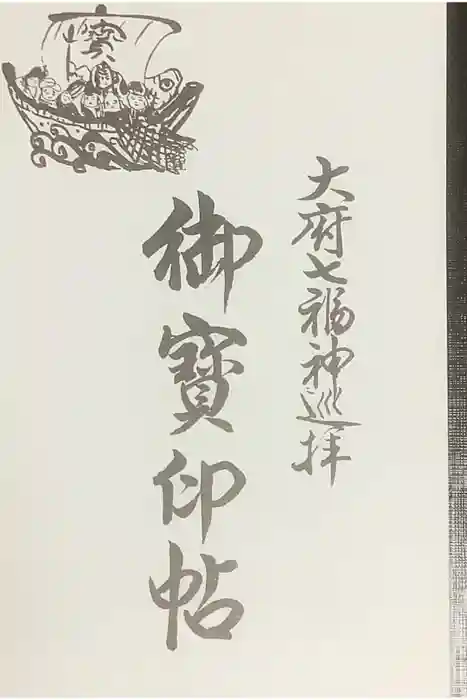 寳
大府七福神巡拝
御寳印帖